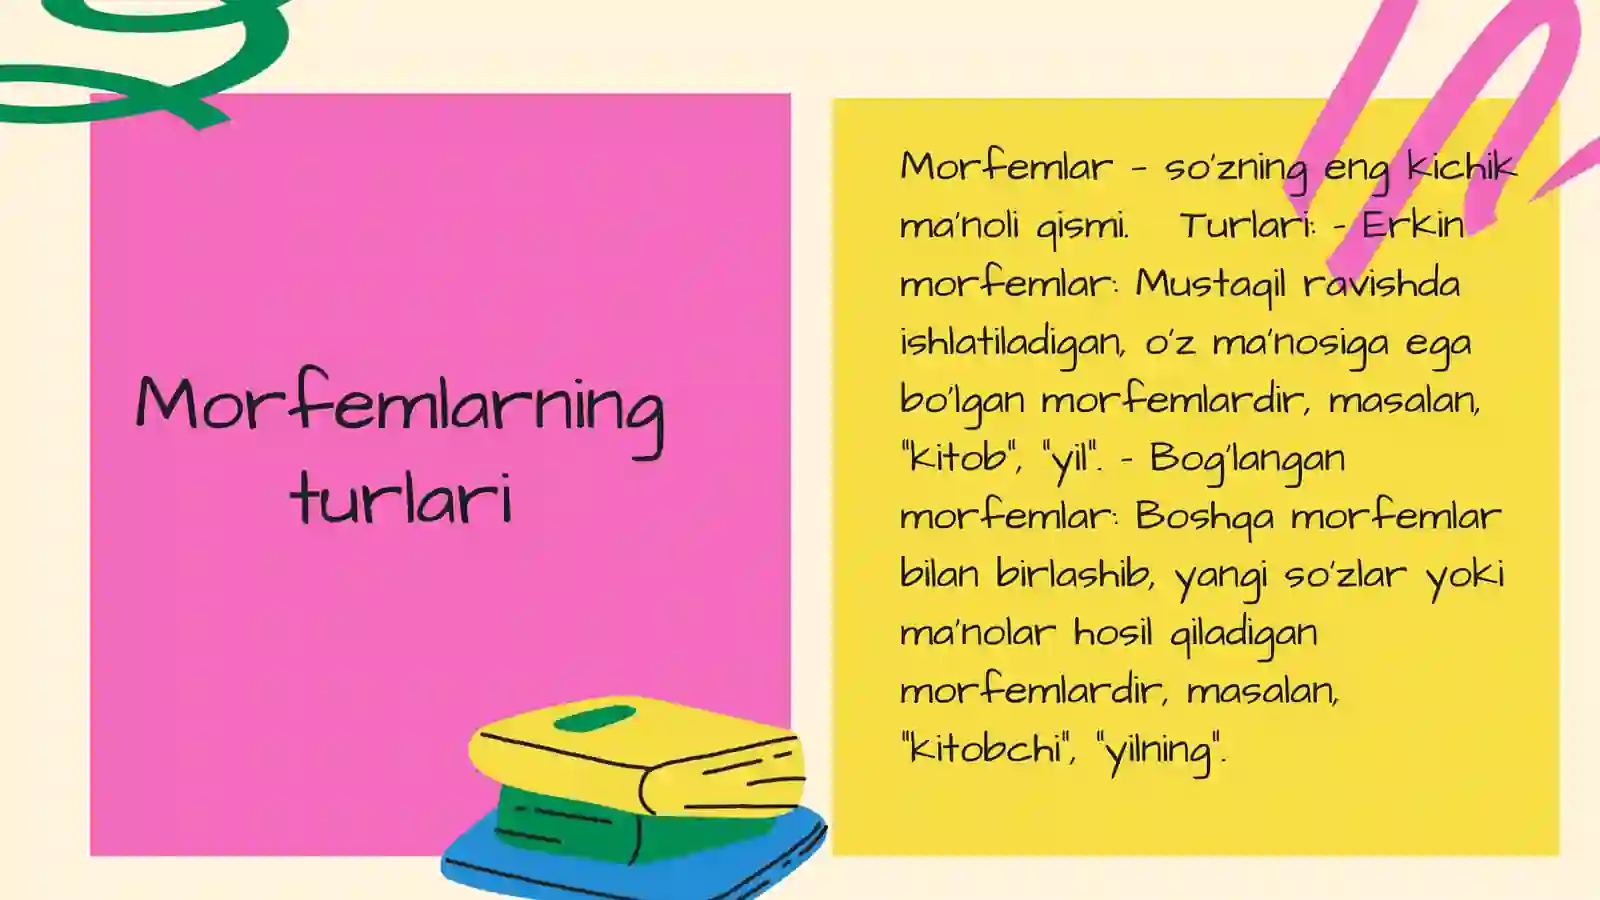 Morfemlarning
turlari
Morfemlar - so'zning eng kichik
ma'noli qismi.   Turlari: - Erkin
morfemlar: Mustaqil ravishda
ishlatiladigan, o'z ma'nosiga ega
bo'lgan morfemlardir, masalan,
"kitob", "yil". - Bog'langan
morfemlar: Boshqa morfemlar
bilan birlashib, yangi so'zlar yoki
ma'nolar hosil qiladigan
morfemlardir, masalan,
"kitobchi", "yilning".